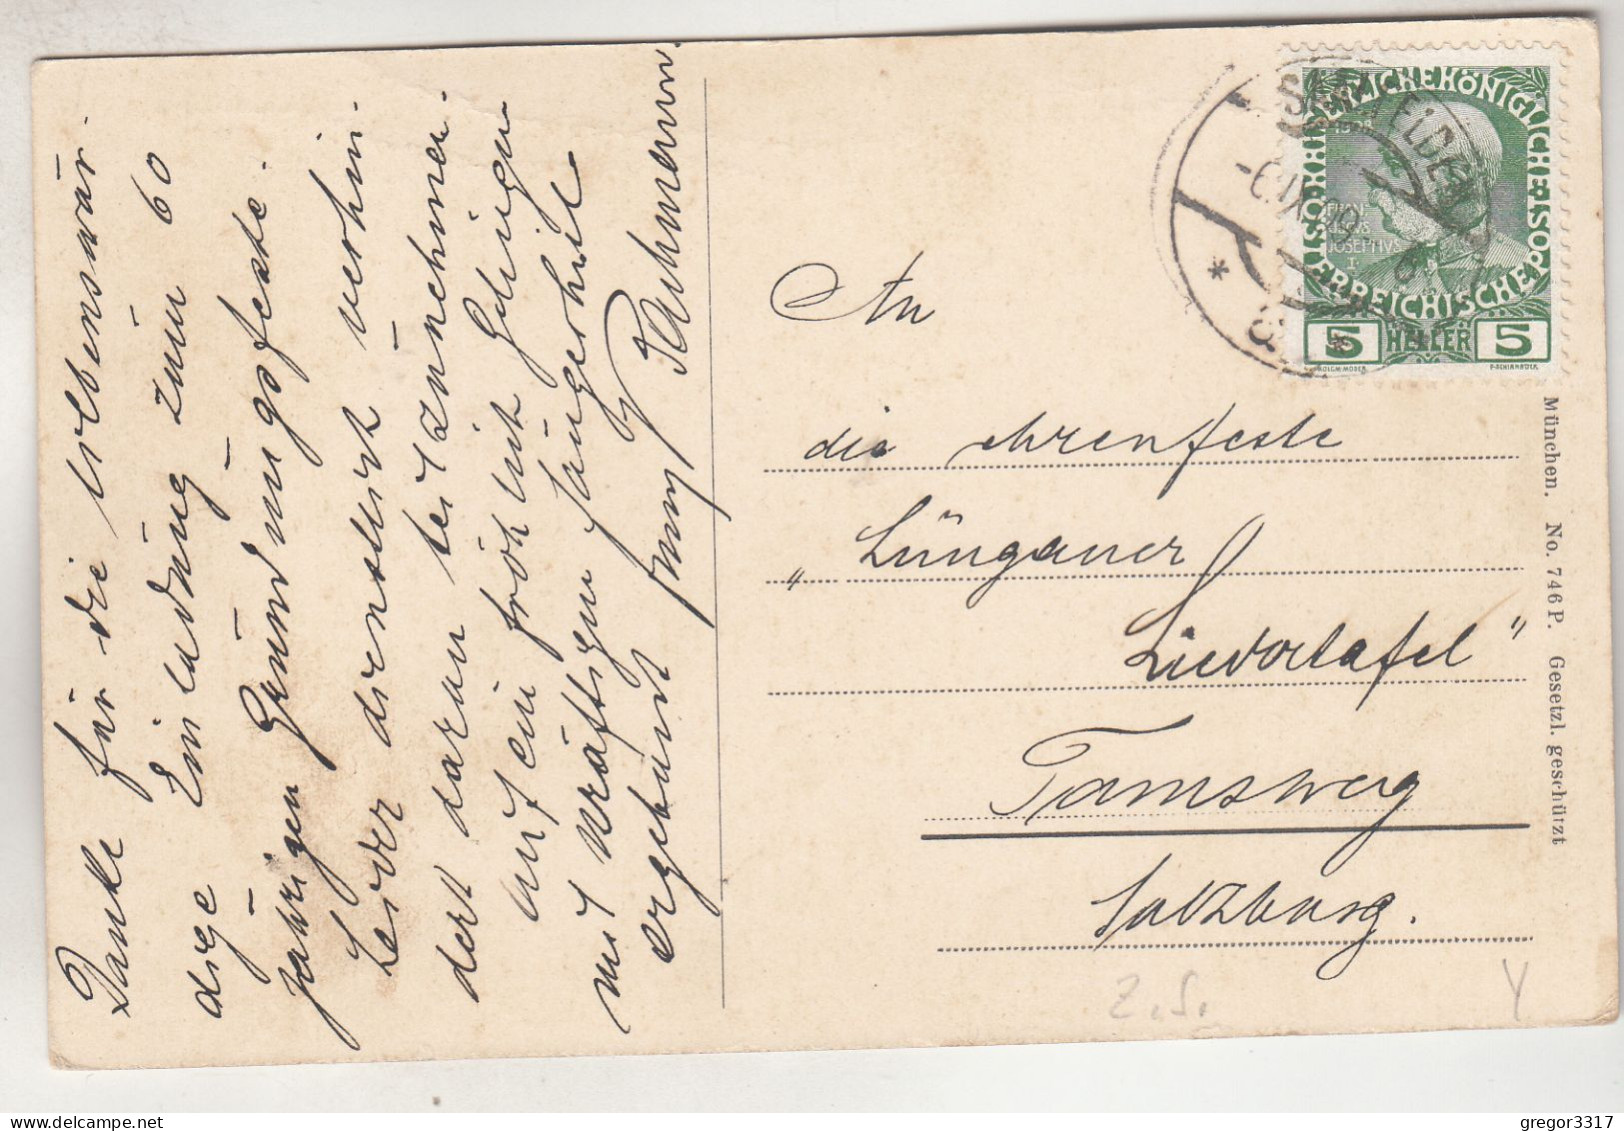 Danke für die liebenswür-
dige Einladung zum 60
jährigen Gründungsfeste.
Leider dienstlich verhin-
dert daran teilzunehmen.
Auf ein fröhlich Gelingen
mit kräftigem Sängerheil
ergebenst
An
die ehrenfeste
„Lungauer
Liedertafel"
Tamsweg
Salzburg.
SAALFELDEN
-6.IX.09
KAISERLICHEKÖNIGLICHE
ÖSTERREICHISCHEPOST
1908
FRAN
CISCVS
JOSEPHVS
I.
5 HELLER 5
KOLOM. MOSER
F. SCHIRNBÖCK
München. No. 746 P. Gesetzl. geschützt
Z.S.
Y
gregor3317